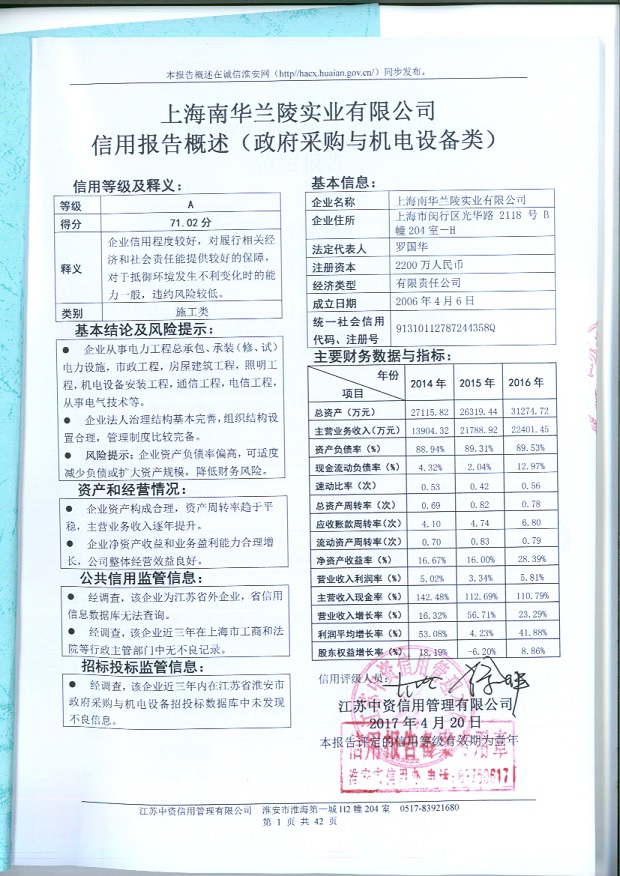 本报告概述在诚信淮安网（http//hacx.huaian.gov.cn/）同步发布。
上海南华兰陵实业有限公司
信用报告概述（政府采购与机电设备类）
信用等级及释义：
等级 A
得分 71.02分
释义 企业信用程度较好，对履行相关经
济和社会责任能提供较好的保障，
对于抵御环境发生不利变化时的能
力一般，违约风险较低。
类别 施工类
基本结论及风险提示：
● 企业从事电力工程总承包、承装（修、试）
电力设施，市政工程，房屋建筑工程，照明工
程，机电设备安装工程，通信工程，电信工程，
从事电气技术等。
● 企业法人治理结构基本完善，组织结构设
置合理，管理制度比较完备。
● 风险提示：企业资产负债率偏高，可适度
减少负债或扩大资产规模，降低财务风险。
资产和经营情况：
● 企业资产构成合理，资产周转率趋于平
稳，主营业务收入逐年提升。
● 企业净资产收益和业务盈利能力合理增
长，公司整体经营效益良好。
公共信用监管信息：
● 经调查，该企业为江苏省外企业，省信用
信息数据库无法查询。
● 经调查，该企业近三年在上海市工商和法
院等行政主管部门中无不良记录。
招标投标监管信息：
● 经调查，该企业近三年内在江苏省淮安市
政府采购与机电设备招投标数据库中未发现
不良信息。
基本信息：
企业名称 上海南华兰陵实业有限公司
企业住所 上海市闵行区光华路 2118 号 B
幢 204 室－H
法定代表人 罗国华
注册资本 2200 万人民币
经济类型 有限责任公司
成立日期 2006 年 4 月 6 日
统一社会信用
代码、注册号 91310112787244358Q
主要财务数据与指标：
年份
项目 2014 年 2015 年 2016 年
总资产（万元） 27115.82 26319.44 31274.72
主营业务收入（万元） 13904.32 21788.92 22401.45
资产负债率（%） 88.94% 89.31% 89.53%
现金流动负债率（%） 4.32% 2.04% 12.97%
速动比率（%） 0.53 0.42 0.56
总资产周转率（次） 0.69 0.82 0.78
应收账款周转率（次） 4.10 4.74 6.80
流动资产周转率（次） 0.70 0.83 0.79
净资产收益率（%） 16.67% 16.00% 28.39%
营业收入利润率（%） 5.02% 3.34% 5.81%
主营收入现金率（%） 142.48% 112.69% 110.79%
营业收入增长率（%） 16.32% 56.71% 23.29%
利润平均增长率（%） 53.08% 4.23% 41.88%
股东权益增长率（%） 18.19% -6.20% 8.86%
信用评级人员：
江苏中资信用管理有限公司
2017 年 4 月 20 日
本报告评定的信用等级有效期为壹年
信用报告备案专用章
淮安市信用办 电话：
江苏中资信用管理有限公司 淮安市淮海第一城 H2 幢 204 室 0517-83921680
第 1 页 共 42 页